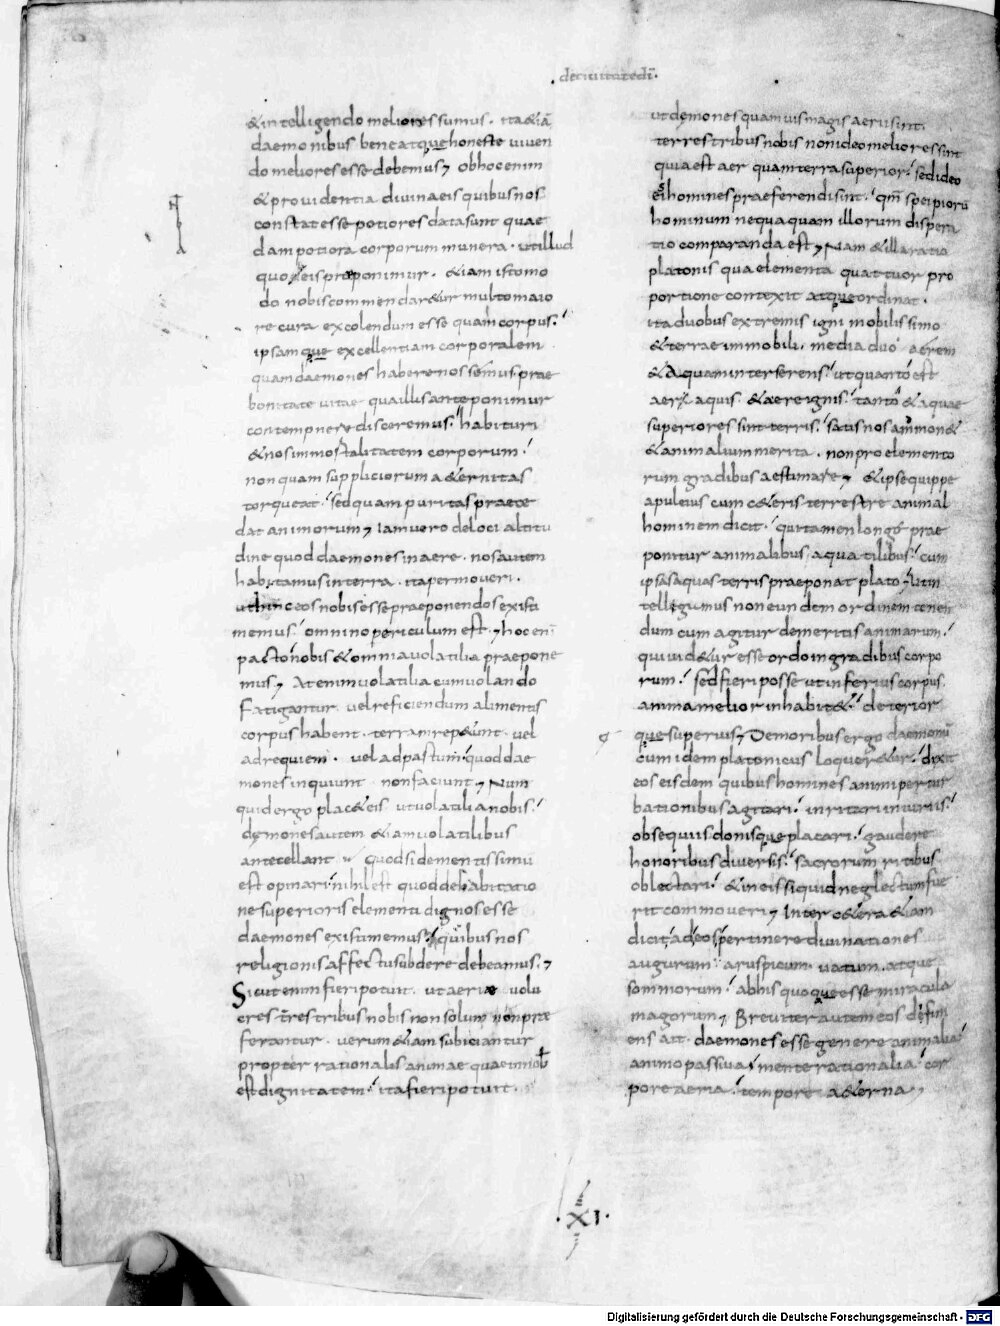 de ciuitate dī
& intelligendo meliores sumus. ita & iā
daemonibus bene atque honeste uiuen
do meliores esse debemus; ob hoc enim
& prouidentia diuina eis quibus nos
constat esse potiores data sunt quae
dam potiora corporum munera. ut illud
quo eis praeponimur. & iam isto mo
do nobis commendar&ur multo maio
re cura excolendum esse quam corpus.
ipsamque excellentiam corporalem
quam daemones habere nossemus prae
bonitate uitae qua illis anteponimur
contempnere disceremus. habituri
& nos inmortalitatem corporum.
non quam suppliciorum a&ernitas
torqueat. sed quam puritas praece
dat animorum; Iam uero de loci altitu
dine quod daemones in aere. nos autem
habitamus in terra. ita permoueri.
ut hinc eos nobis esse praeponendos existi
memus. omnino periculum est; hoc eni
pacto nobis & omnia uolatilia praepone
mus; At enim uolatilia cum uolando
fatigantur. uel reficiendum alimentis
corpus habent. terram rep&unt. uel
ad requiem. uel ad pastum. quod dae
mones inquiunt non faciunt; Num
quid ergo plac& eis ut uolatilia nobis.
dęmones autem &iam uolatilibus
antecellant quod si dementissimū
est opinari. nihil est quod de habitatio
ne superioris elementi dignos esse
daemones existimemus. quibus nos
religionis affectu subdere debeamus;
Sicut enim fieri potuit. ut aeriae uolu
cres trēstribus nobis non solum non prae
ferantur. uerum &iam subiciantur
propter rationalis animae quae in nob
est dignitatem. ita fieri potuit.
ut dęmones quamuis magis aerii sint.
terrestribus nobis non ideo meliores sint
quia est aer quam terra superior. sed ideo
eis homines praeferendi sint. qm̄ spei piorū
hominum nequaquam illorum dispera
tio comparanda est; Nam & illa ratio
platonis qua elementa quattuor pro
portione contexit atque ordinat.
ita duobus extremis igni mobilissimo
& terrae immobili. media duo aerem
& aquam interserens. ut quanto est
aer aquis. & aere ignis. tanto & aquae
superiores sint terris. satis nos ammon&
& animalium merita. non pro elemento
rum gradibus aestimare; & ipse quippe
apuleius cum c&eris terrestre animal
hominem dicit. qui tamen longe prae
ponitur animalibus aquatilibus. cum
ipsas aquas terris praeponat plato; Ut in
tellegamus non eundem ordinem tenen
dum cum agitur de meritis animarum.
qui uid&ur esse ordo in gradibus corpo
rum. sed fieri posse ut inferius corpus
anima melior inhabit&. deterior
que superius; De moribus ergo daemonū
cum idem platonicus loquer&ur. dixit
eos eisdem quibus homines animi pertur
bationibus agitari. inritari iniuriis.
obsequiis donisque placari. gaudere
honoribus diuersis. sacrorum ritibus
oblectari. & in eis si quid neglectum fue
rit commoueri; Inter c&era &iam
dicit ad eos pertinere diuinationes
augurum. aruspicum. uatum. atque
somniorum. ab his quoque esse miracula
magorum; Breuiter autem eos defini
ens ait. daemones esse genere animalia.
animo passiua. mente rationalia. cor
pore aeria. tempore a&erna;
.XI.
Digitalisierung gefördert durch die Deutsche Forschungsgemeinschaft - DFG